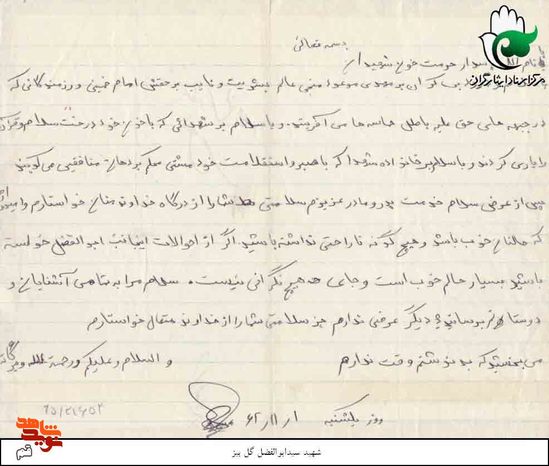 بسمه تعالی
بنام الله پاسدار حرمت خون شهیدان
موعود منجی عالم بشریت و نایب بر حقش امام خمینی و رزمندگانی که
در جبهه های حق علیه باطل حماسه ها می آفریند. و با سلام بر شهدائی که با خون خود درخت اسلام و قرآن
را یاری کردند و با سلام بر خانواده شهدا که با صبر و استقامت خود مشتی محکم بر دهان منافقین می کوبند
پس از عرض سلام خدمت پدر و مادر عزیزم سلامتی شما را از درگاه خداوند منان خواستارم و امیدوارم
که حالتان خوب باشد و هیچ گونه ناراحتی نداشته باشید. اگر از احوالات اینجانب ابوالفضل خواسته
باشید بسیار حالم خوب است و جای هیچ نگرانی نیست. سلام مرا به تمامی آشنایان و
دوستانم برسانید دیگر عرضی ندارم جز سلامتی شما را از خداوند متعال خواستارم
می بخشید که بد نوشتم وقت ندارم والسلام و علیکم و رحمة الله و برکاته
روز یکشنبه ۶۲/۱۱/۱
مرکز اسناد ایثارگران
شاهد
نوید
قم
شهید سیدابوالفضل گل بیز